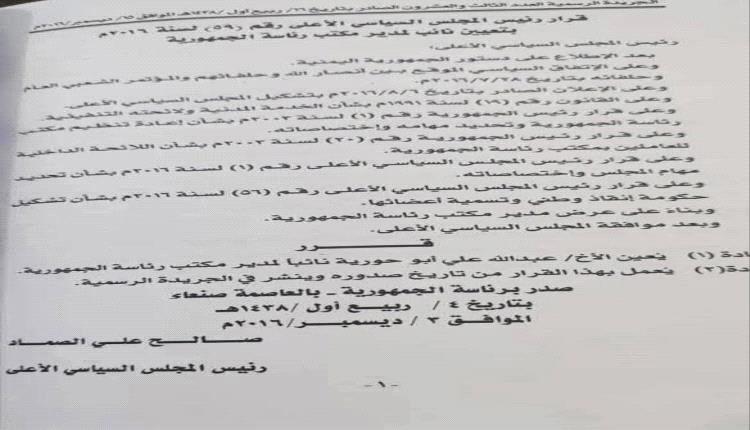 الجريدة الرسمية العدد الثالث والعشرون الصادر بتاريخ ١٦/ ربيع أول /١٤٣٨هـ الموافق ١٥/ ديسمبر/٢٠١٦م
قرار رئيس المجلس السياسي الأعلى رقم (٥٩) لسنة ٢٠١٦م
بتعيين نائب لمدير مكتب رئاسة الجمهورية
رئيس المجلس السياسي الأعلى:
بعد الإطلاع على دستور الجمهورية اليمنية.
وعلى الإتفاق السياسي الموقع بين انصار الله وحلفائهم والمؤتمر الشعبي العام
وحلفائه بتاريخ ٢٠١٦/٧/٢٨م.
وعلى الإعلان الصادر بتاريخ ٢٠١٦/٨/٦م بتشكيل المجلس السياسي الأعلى.
وعلى القانون رقم (١٩) لسنة ١٩٩١م بشأن الخدمة المدنية ولائحته التنفيذية.
وعلى قرار رئيس الجمهورية رقم (١) لسنة ٢٠٠٣م بشأن إعادة تنظيم مكتب
رئاسة الجمهورية وتحديد مهامه وإختصاصاته.
وعلى قرار رئيس الجمهورية رقم (٢٠) لسنة ٢٠٠٣م بشأن اللائحة الداخلية
للعاملين بمكتب رئاسة الجمهورية.
وعلى قرار رئيس المجلس السياسي الأعلى رقم (١) لسنة ٢٠١٦م بشأن تحديد
مهام المجلس وإختصاصاته.
وعلى قرار رئيس المجلس السياسي الأعلى رقم (٥٦) لسنة ٢٠١٦م بشأن تشكيل
حكومة إنقاذ وطني وتسمية أعضائها.
وبناءً على عرض مدير مكتب رئاسة الجمهورية.
وبعد موافقة المجلس السياسي الأعلى.
قـــــــرر
ادة (١) يعين الأخ/ عبدالله علي أبو حورية نائباً لمدير مكتب رئاسة الجمهورية.
دة(٢) يعمل بهذا القرار من تاريخ صدوره وينشر في الجريدة الرسمية.
صدر برئاسة الجمهورية - بالعاصمة صنعاء
بتاريخ ٤ / ربيع أول /١٤٣٨هـ
الموافق ٣ / ديسمبر/٢٠١٦م
صالح علي الصماد
رئيس المجلس السياسي الأعلى
-١-